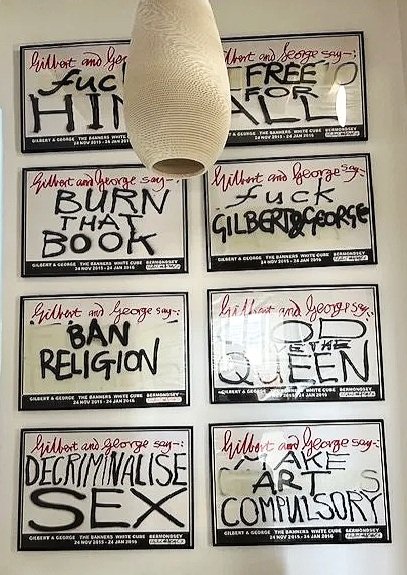 Gilbert and
fuc
HI
GILBERT & GEORGE THE BANNERS WHITE CUBE
24 NOV 2015 - 24 JAN 2016
George say-:
FREE
FOR
ALL
GILBERT & GEORGE THE BANNERS WHITE CUBE BERMONDSEY
24 NOV 2015 - 24 JAN 2016
Gilbert and George say-:
BURN
THAT
BOOK
GILBERT & GEORGE THE BANNERS WHITE CUBE BERMONDSEY
24 NOV 2015 - 24 JAN 2016
Gilbert and George say-:
fuck
GILBERT&GEORGE
GILBERT & GEORGE THE BANNERS WHITE CUBE BERMONDSEY
24 NOV 2015 - 24 JAN 2016
Gilbert and George say-:
BAN
RELIGION
GILBERT & GEORGE THE BANNERS WHITE CUBE BERMONDSEY
24 NOV 2015 - 24 JAN 2016
Gilbert and George say-:
THE
QUEEN
GILBERT & GEORGE THE BANNERS WHITE CUBE BERMONDSEY
24 NOV 2015 - 24 JAN 2016
Gilbert and George say-:
DECRIMINALISE
SEX
GILBERT & GEORGE THE BANNERS WHITE CUBE BERMONDSEY
24 NOV 2015 - 24 JAN 2016
Gilbert and George say-:
MAKE
ART
COMPULSORY
GILBERT & GEORGE THE BANNERS WHITE CUBE BERMONDSEY
24 NOV 2015 - 24 JAN 2016